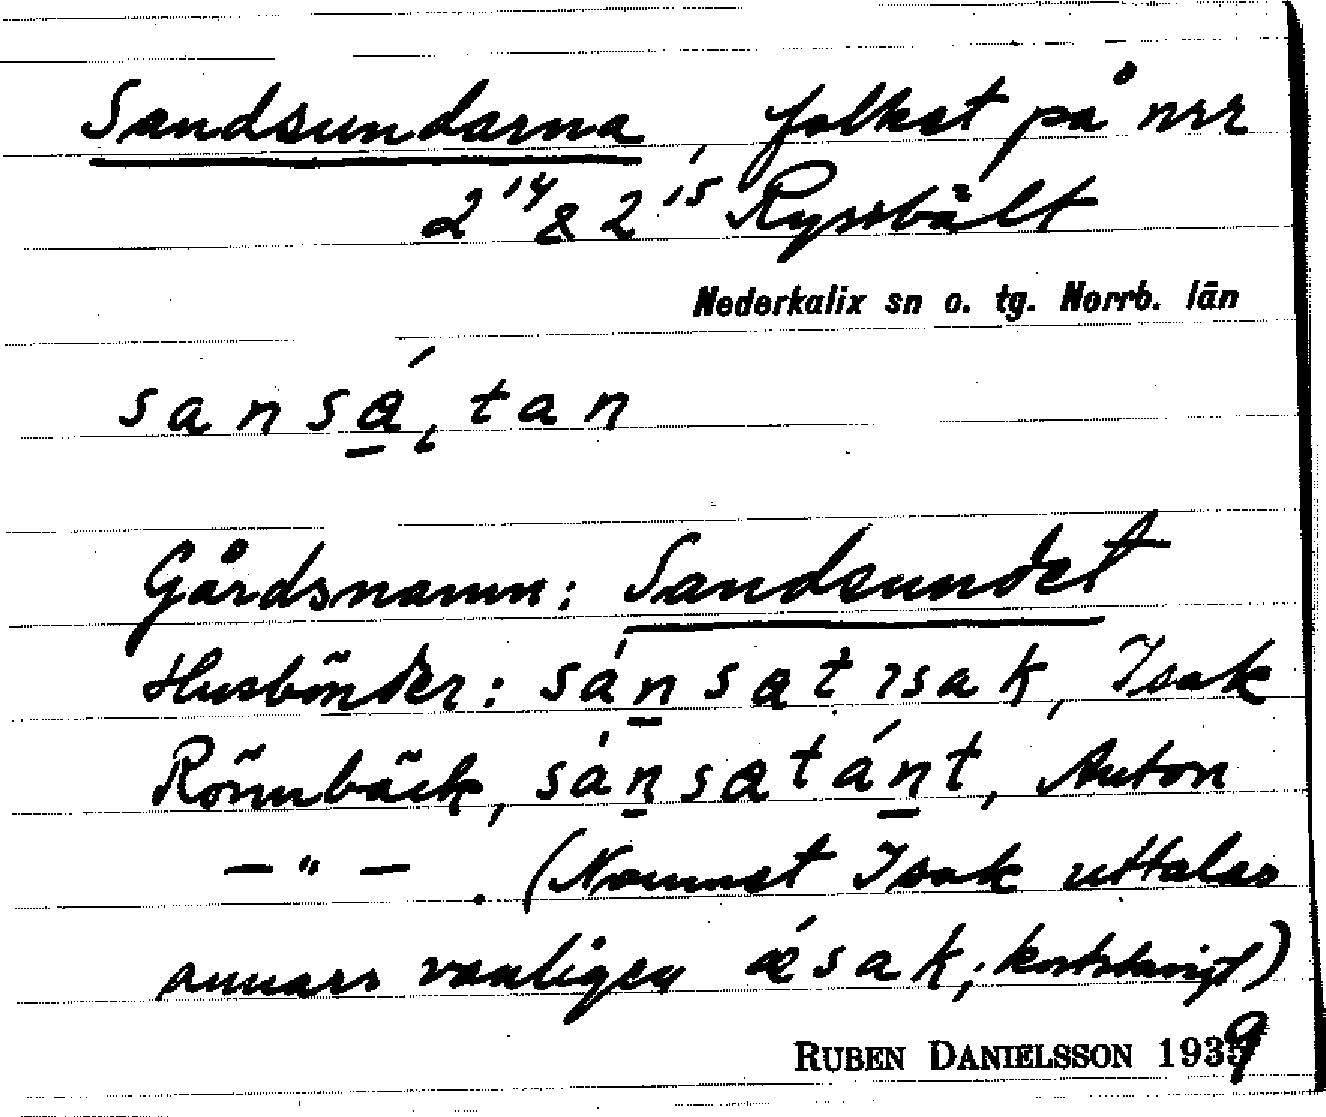 Sandsundarna, folket på nrr
2¹⁴ & 2¹⁵ Ryssbält
Nederkalix sn o. tg. Norrb. län
sansá̱ˌtan
Gårdsnamn: Sandsundet
Husbönder: sán̠satısak, Isak
Rönnbäck, sán̠satán̠t, Anton
— " — . (Namnet Isak uttalas
annars vanligen ǽsak; kortstavigt)
RUBEN DANIELSSON 1939